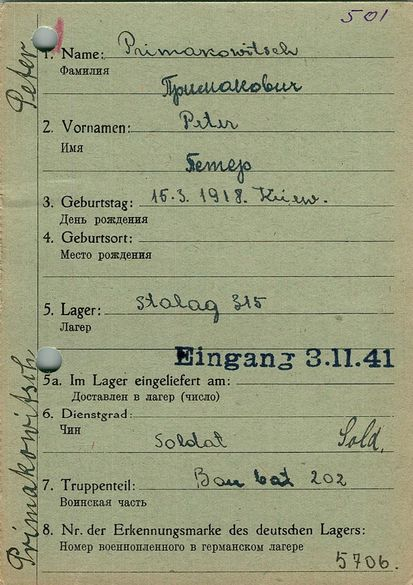 501
1. Name: Primakowitsch
Фамилия
Примакович
2. Vornamen: Peter
Имя
Петер
3. Geburtstag: 15.3.1918. Kiew.
День рождения
4. Geburtsort:
Место рождения
5. Lager: Stalag 315
Лагерь
Eingang 3.11.41
5a. Im Lager eingeliefert am:
Доставлен в лагер (число)
6. Dienstgrad:
Чин
Soldat Sold.
7. Truppenteil: Bau bat 202
Воинская часть
8. Nr. der Erkennungsmarke des deutschen Lagers:
Номер военнопленного в германском лагере
5706.
Primakowitsch Peter